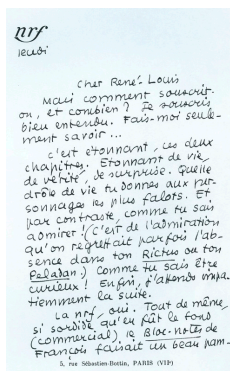 nrf
jeudi
Cher René-Louis
Mais comment souscrit-
on, et combien ? Je souscris
bien entendu. Fais-moi seule-
ment savoir ...
c'est étonnant, ces deux
chapitres. Étonnant de vie,
de vérité, de surprise. Quelle
drôle de vie tu donnes aux per-
sonnages les plus falots. Et
par contraste, comme tu sais
admirer ! (C'est de l'admiration
qu'on regrettait parfois l'ab-
sence dans ton Rictus ou ton
Peladan.) Comme tu sais être
curieux ! Enfin, j'attends impa-
tiemment la suite.
La nrf, oui. Tout de même,
si sordide qu'en fût le fond
(commercial) le Bloc-notes de
François faisait un beau pam-
5, rue Sébastien-Bottin, PARIS (VIIe)